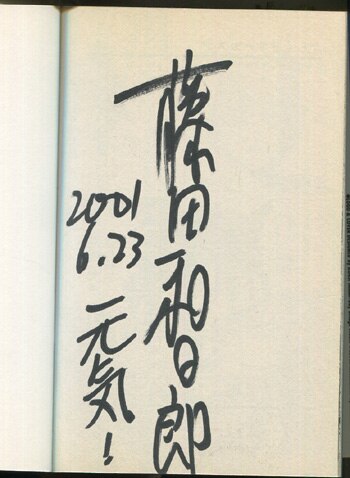 藤田和日郎
2001
6.23
元気!